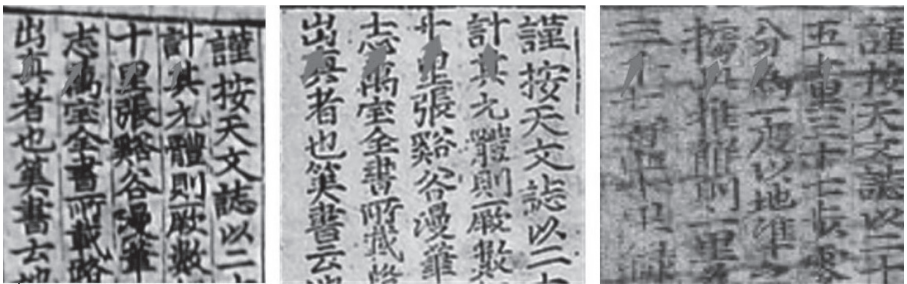 謹按天文誌以二
計其元體則厥數
十里張谿谷漫筆
志萬室全書所載略
出真者也筭書云地
謹按天文誌以二十
計其元體則厥數
十里張谿谷漫筆
志萬室全書所載
出真者也筭書云地
謹按天文誌以二十
五里三十七步零
分為一度以地準之
推則一里
三十